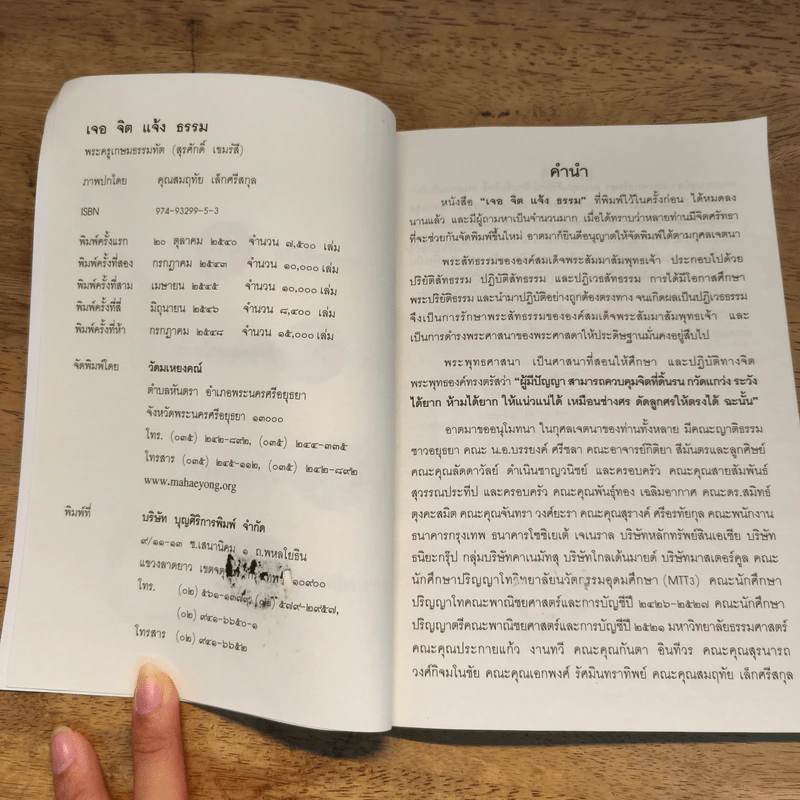 เจอ จิต แจ้ง ธรรม
พระครูเกษมธรรมทัต (สุรศักดิ์ เขมรํสี)
ภาพปกโดย คุณสมฤทัย เล็กศรีสกุล
ISBN 974-93299-5-3
พิมพ์ครั้งแรก ๒๐ ตุลาคม ๒๕๔๐ จำนวน ๗,๕๐๐ เล่ม
พิมพ์ครั้งที่สอง กรกฎาคม ๒๕๔๓ จำนวน ๑๐,๐๐๐ เล่ม
พิมพ์ครั้งที่สาม เมษายน ๒๕๔๕ จำนวน ๑๐,๐๐๐ เล่ม
พิมพ์ครั้งที่สี่ มิถุนายน ๒๕๔๖ จำนวน ๘,๔๐๐ เล่ม
พิมพ์ครั้งที่ห้า กรกฎาคม ๒๕๔๘ จำนวน ๑๕,๐๐๐ เล่ม
จัดพิมพ์โดย วัดมเหยงคณ์
ตำบลหันตรา อำเภอพระนครศรีอยุธยา
จังหวัดพระนครศรีอยุธยา ๑๓๐๐๐
โทร. (๐๓๕) ๒๔๒-๘๙๒, (๐๓๕) ๒๔๔-๓๓๕
โทรสาร (๐๓๕) ๒๔๕-๑๑๒, (๐๓๕) ๒๔๒-๘๙๒
www.mahaeyong.org
พิมพ์ที่ บริษัท บุญศิริการพิมพ์ จำกัด
๙/๑๑-๑๓ ซ.เสนานิคม ๑ ถ.พหลโยธิน
แขวงลาดยาว ๑๐๙๐๐
โทร. (๐๒) ๕๗๙-๒๙๕๗,
(๐๒) ๙๔๑-๖๖๕๐-๑
โทรสาร (๐๒) ๙๔๑-๖๖๕๒
คำนำ
หนังสือ “เจอ จิต แจ้ง ธรรม” ที่พิมพ์ไว้ในครั้งก่อน ได้หมดลง
นานแล้ว และมีผู้ถามหาเป็นจำนวนมาก เมื่อได้ทราบว่าหลายท่านมีจิตศรัทธา
ที่จะช่วยกันจัดพิมพ์ขึ้นใหม่ อาตมาก็ยินดีอนุญาตให้จัดพิมพ์ได้ตามกุศลเจตนา
พระสัทธรรมขององค์สมเด็จพระสัมมาสัมพุทธเจ้า ประกอบไปด้วย
ปริยัติสัทธรรม ปฏิบัติสัทธรรม และปฏิเวธสัทธรรม การได้มีโอกาสศึกษา
พระปริยัติธรรม และนำมาปฏิบัติอย่างถูกต้องตรงทาง จนเกิดผลเป็นปฏิเวธธรรม
จึงเป็นการรักษาพระสัทธรรมขององค์สมเด็จพระสัมมาสัมพุทธเจ้า และ
เป็นการดำรงพระศาสนาของพระศาสดาให้ประดิษฐานมั่นคงอยู่สืบไป
พระพุทธศาสนา เป็นศาสนาที่สอนให้ศึกษา และปฏิบัติทางจิต
พระพุทธองค์ทรงตรัสว่า “ผู้มีปัญญา สามารถควบคุมจิตที่ดิ้นรน กวัดแกว่ง ระวัง
ได้ยาก ห้ามได้ยาก ให้แน่วแน่ได้ เหมือนช่างศร ดัดลูกศรให้ตรงได้ ฉะนั้น”
อาตมาขออนุโมทนา ในกุศลเจตนาของท่านทั้งหลาย มีคณะญาติธรรม
ชาวอยุธยา คณะ น.อ.บรรยงค์ ศรีชลา คณะอาจารย์กิติยา สีมันตรและลูกศิษย์
คณะคุณลัดดาวัลย์ ดำเนินชาญวนิชย์ และครอบครัว คณะคุณสายสัมพันธ์
สุวรรณประทีป และครอบครัว คณะคุณพันธุ์ทอง เฉลิมอากาศ คณะดร.สมิทธ์
ตุงคะสมิต คณะคุณจันทรา วงศ์ยะรา คณะคุณสุรางค์ ศรีอรทัยกุล คณะพนักงาน
ธนาคารกรุงเทพ ธนาคารโซซิเยเต้ เจเนราล บริษัทหลักทรัพย์สินเอเซีย บริษัท
ธนิยะกรุ๊ป กลุ่มบริษัทคาเนมัทสุ บริษัทโกลเด้นมายด์ บริษัทมาสเตอร์คูล คณะ
นักศึกษาปริญญาโทวิทยาลัยนวัตกรรมอุดมศึกษา (MTT3) คณะนักศึกษา
ปริญญาโทคณะพาณิชยศาสตร์และการบัญชีปี ๒๕๒๖-๒๕๒๗ คณะนักศึกษา
ปริญญาตรีคณะพาณิชยศาสตร์และการบัญชีปี ๒๕๒๑ มหาวิทยาลัยธรรมศาสตร์
คณะคุณประกายแก้ว งานทวี คณะคุณกันตา อินทีวร คณะคุณสุรนารถ
วงศ์กิจมโนชัย คณะคุณเอกพงศ์ รัศมินทราทิพย์ คณะคุณสมฤทัย เล็กศรีสกุล